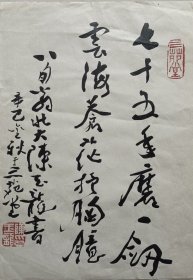 七十五年磨一劍
雲海蒼茫於胸鏡
八旬翁北大陳玉龍書
辛巳金秋